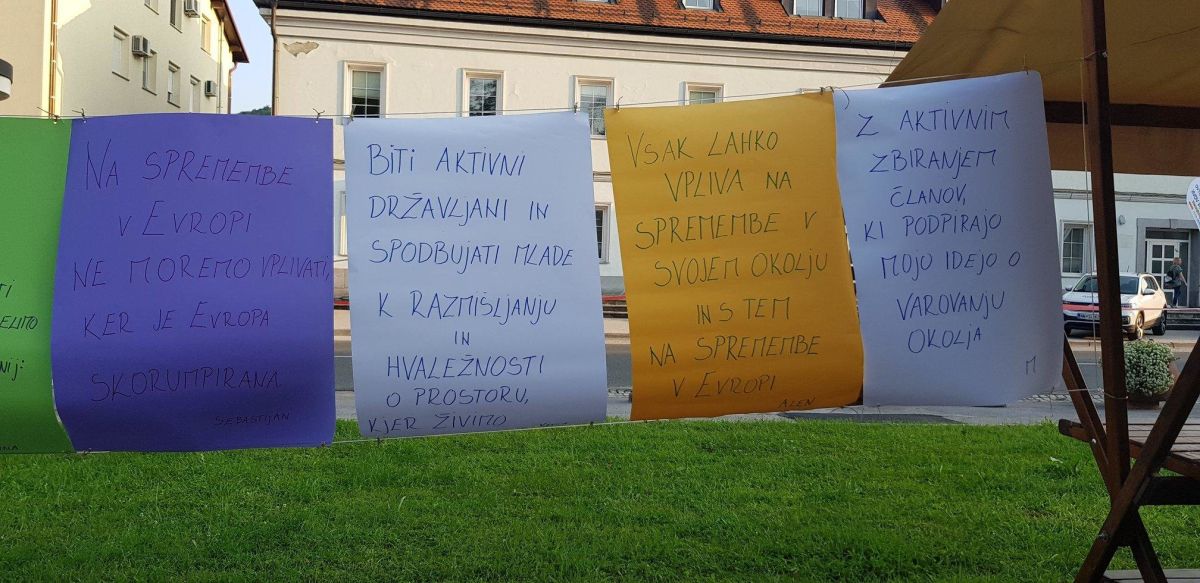 TI
ELIMO
NIJ:
INA
NA SPREMEMBE
V EVROPI
NE MOREMO VPLIVATI,
KER JE EVROPA
SKORUMPIRANA
SEBASTIJAN
BITI AKTIVNI
DRŽAVLJANI IN
SPODBUJATI MLADE
K RAZMIŠLJANJU
IN
HVALEŽNOSTI
O PROSTORU,
KJER ŽIVIMO
VSAK LAHKO
VPLIVA NA
SPREMEMBE V
SVOJEM OKOLJU
IN S TEM
NA SPREMEMBE
V EVROPI
ALEN
Z AKTIVNIM
ZBIRANJEM
ČLANOV,
KI PODPIRAJO
MOJO IDEJO O
VAROVANJU
OKOLJA
M